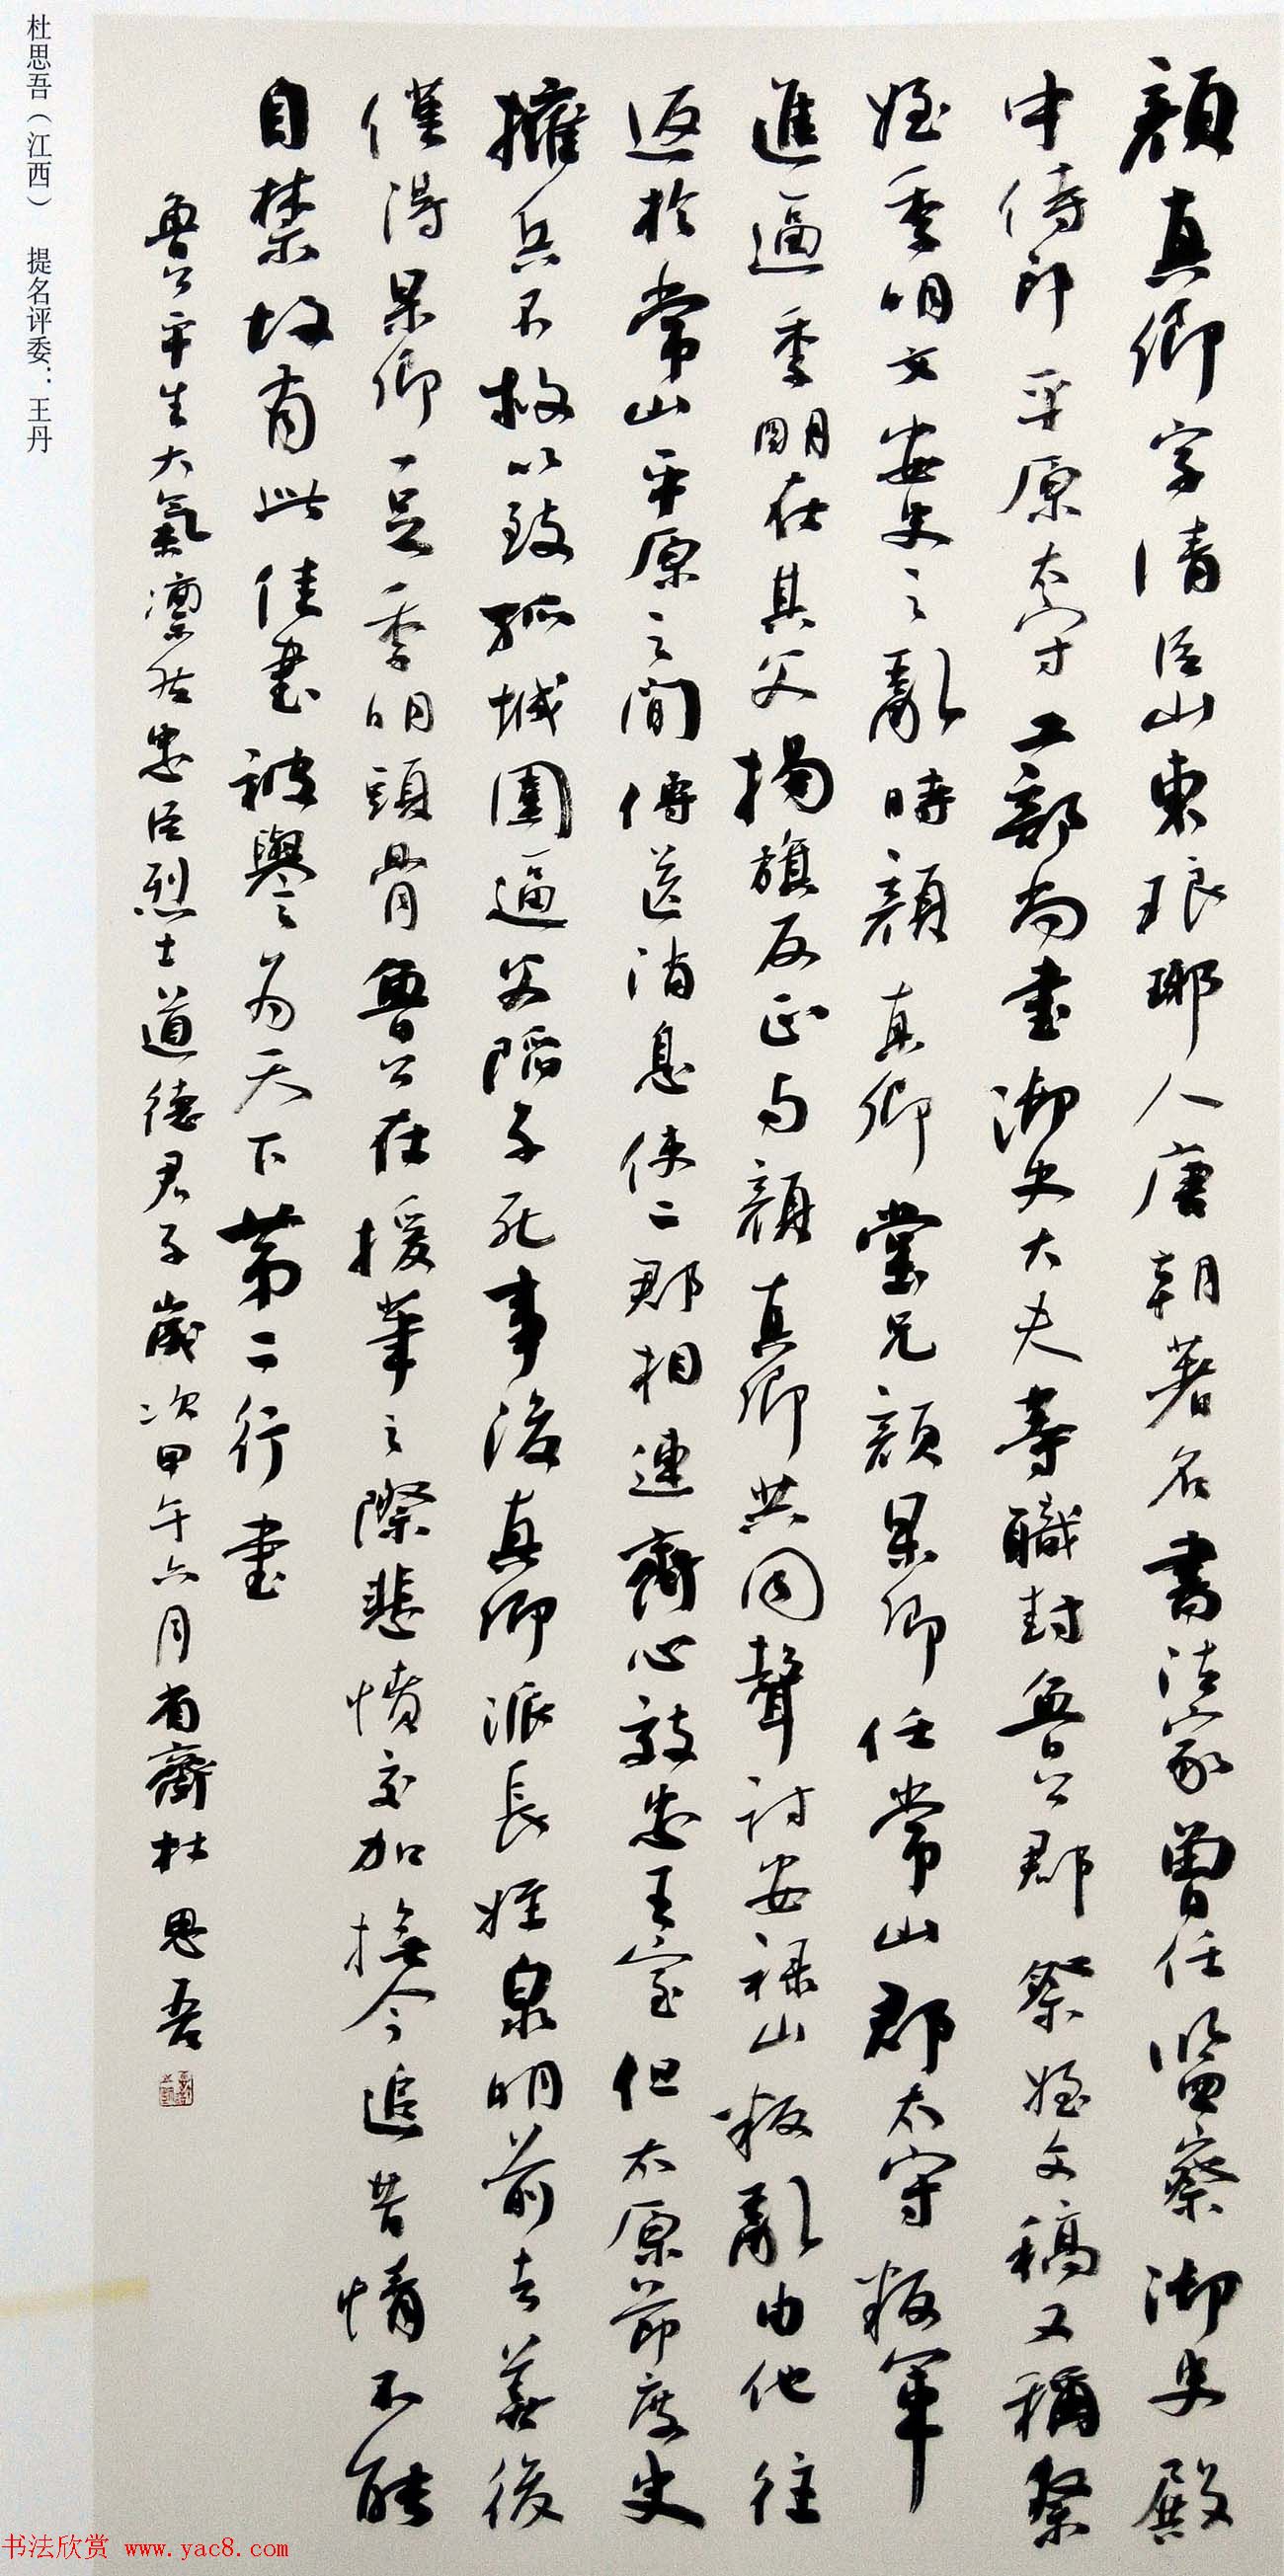 顏真卿字清臣山東琅琊人唐朝著名書法家曾任監察御史殿
中侍郎平原太守工部尚書御史大夫等職封魯公郡祭姪文稿又稱祭
姪季明文安史之亂時顏真卿堂兄顏杲卿任常山郡太守叛軍
進逼季明在其父揚旗反正与顏真卿共同聲討安禄山叛亂由他往
返於常山平原之間傳送消息使二郡相連齊心效忠王室但太原節度史
擁兵不救以致孤城圍逼父陷子死事後真卿派長姪泉明前去善後
僅得杲卿一足季明頭骨魯公在援筆之際悲憤交加撫今追昔情不能
自禁故有此佳書被譽為天下第二行書
魯公平生大氣凛然忠臣烈士道德君子歲次甲午六月有齋杜思吾
杜思吾（江西） 提名评委：王丹
书法欣赏 www.yac8.com